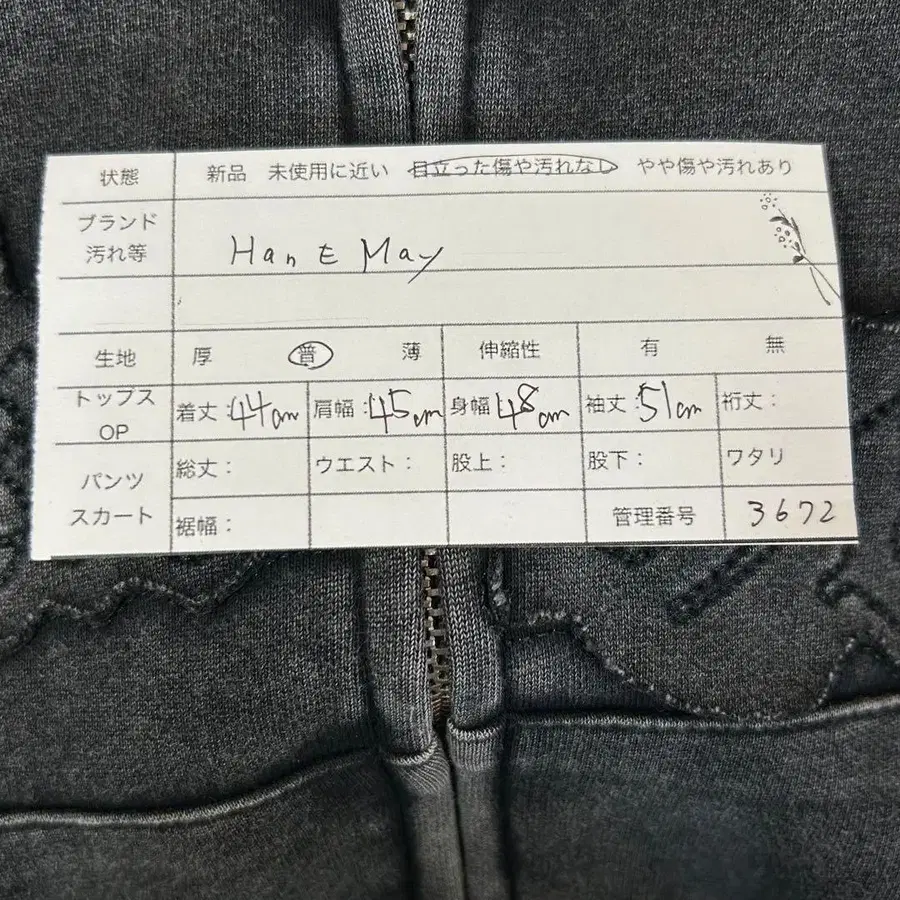 状態 新品 未使用に近い 目立った傷や汚れなし やや傷や汚れあり
ブランド
汚れ等
Han E May
生地 厚 普 薄 伸縮性 有 無
トップス
OP
着丈:44cm 肩幅:45cm 身幅:48cm 袖丈:51cm 裄丈:
パンツ
スカート
総丈: ウエスト: 股上: 股下: ワタリ
裾幅: 管理番号 3672